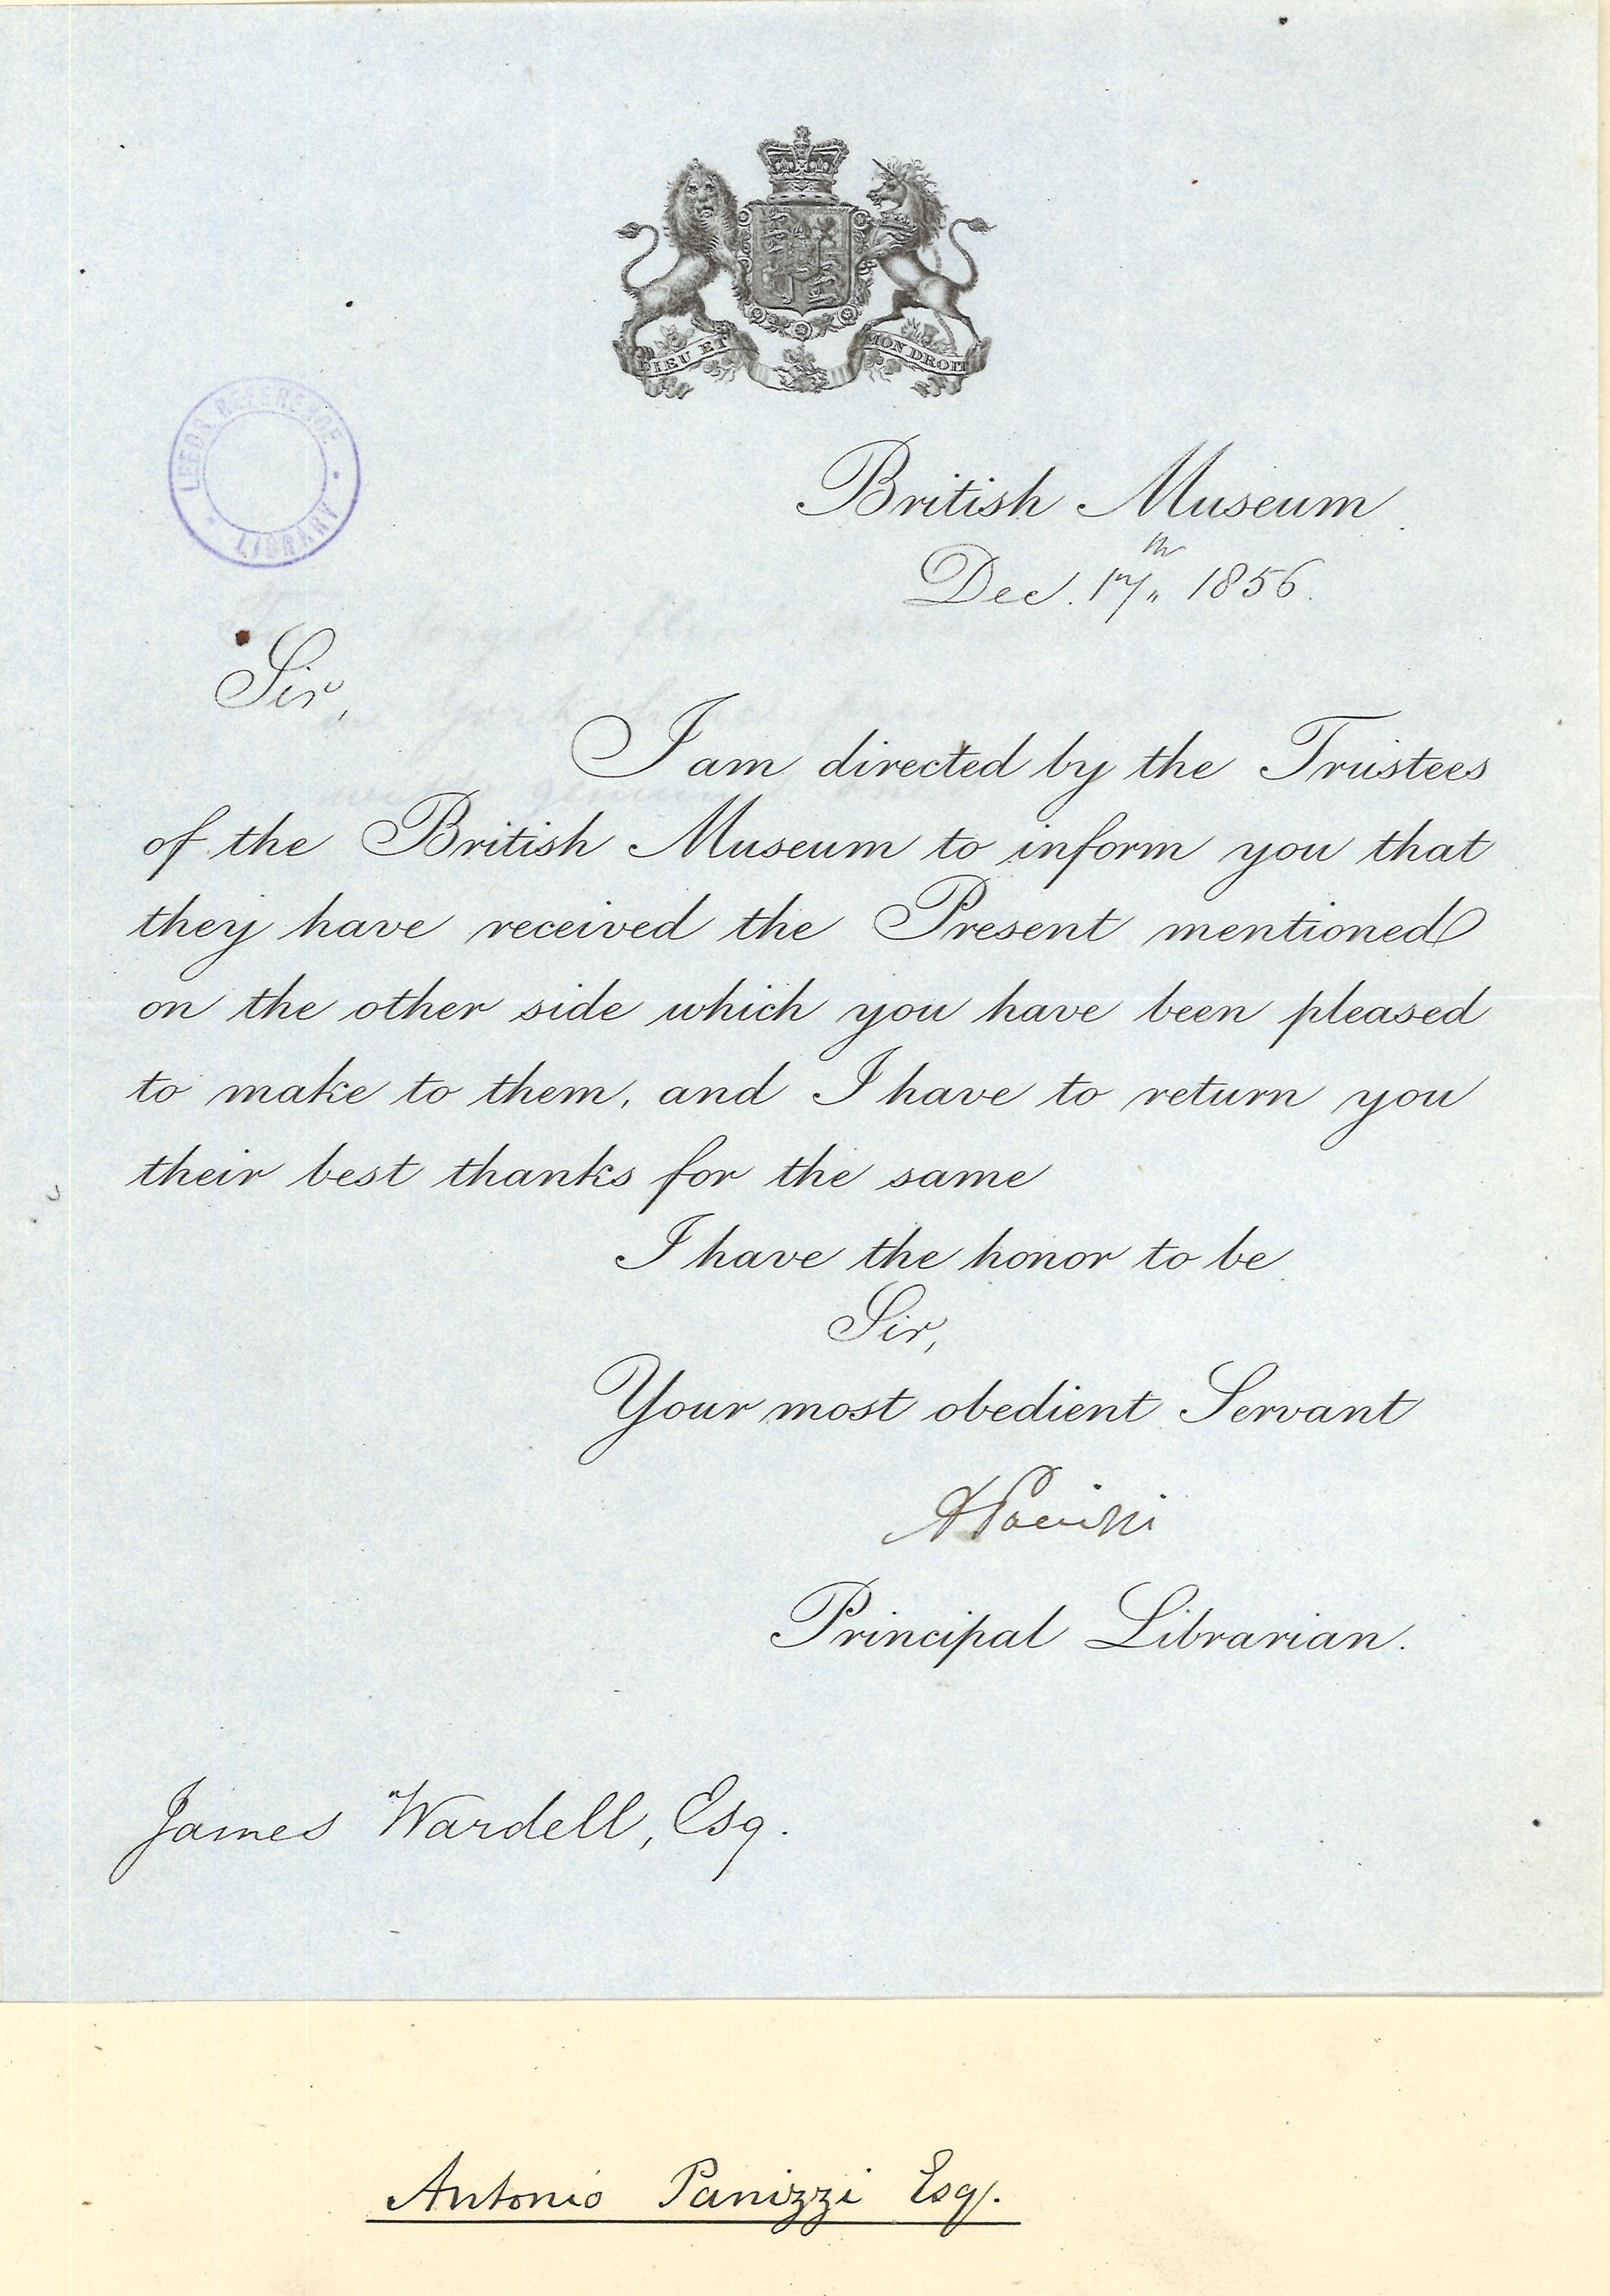 DIEU ET MON DROIT
LEEDS REFERENCE LIBRARY
British Museum
Dec. 17th 1856.
Sir,
I am directed by the Trustees
of the British Museum to inform you that
they have received the Present mentioned
on the other side which you have been pleased
to make to them, and I have to return you
their best thanks for the same
I have the honor to be
Sir,
Your most obedient Servant
A Panizzi
Principal Librarian.
James Wardell, Esq.
Antonio Panizzi Esq.